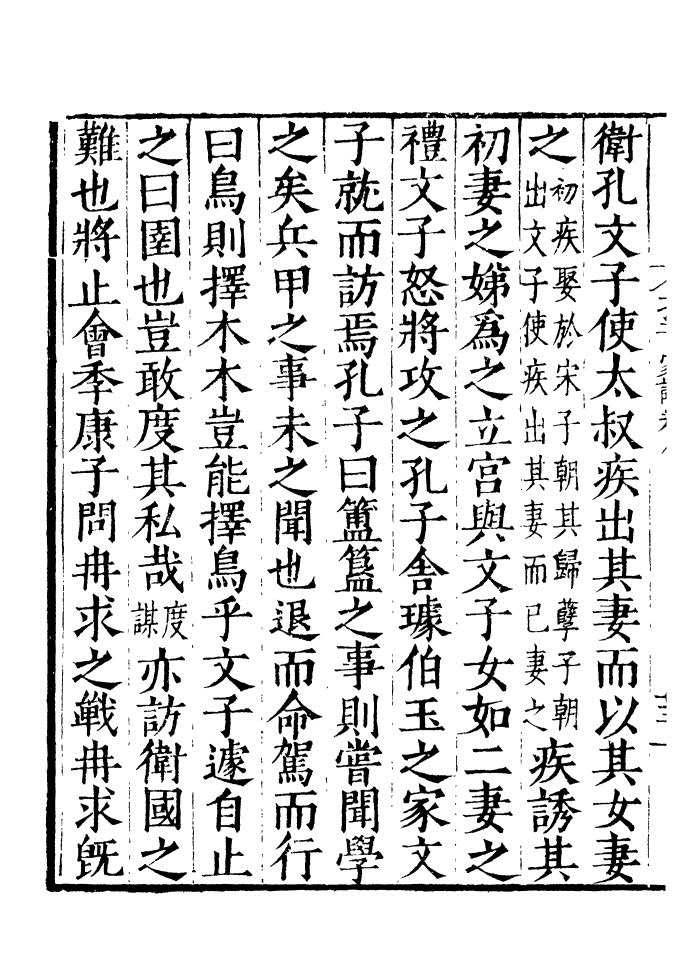 衛孔文子使太叔疾出其妻而以其女妻
之初疾娶於宋子朝其歸孽子朝出文子使疾出其妻而已妻之疾誘其
初妻之娣爲之立宮與文子女如二妻之
禮文子怒將攻之孔子舎璩伯玉之家文
子就而訪焉孔子曰簠簋之事則嘗聞學
之矣兵甲之事未之聞也退而命駕而行
曰鳥則擇木木豈能擇鳥乎文子遽自止
之曰圉也豈敢度其私哉度謀亦訪衛國之
難也將止會季康子問冉求之戰冉求既